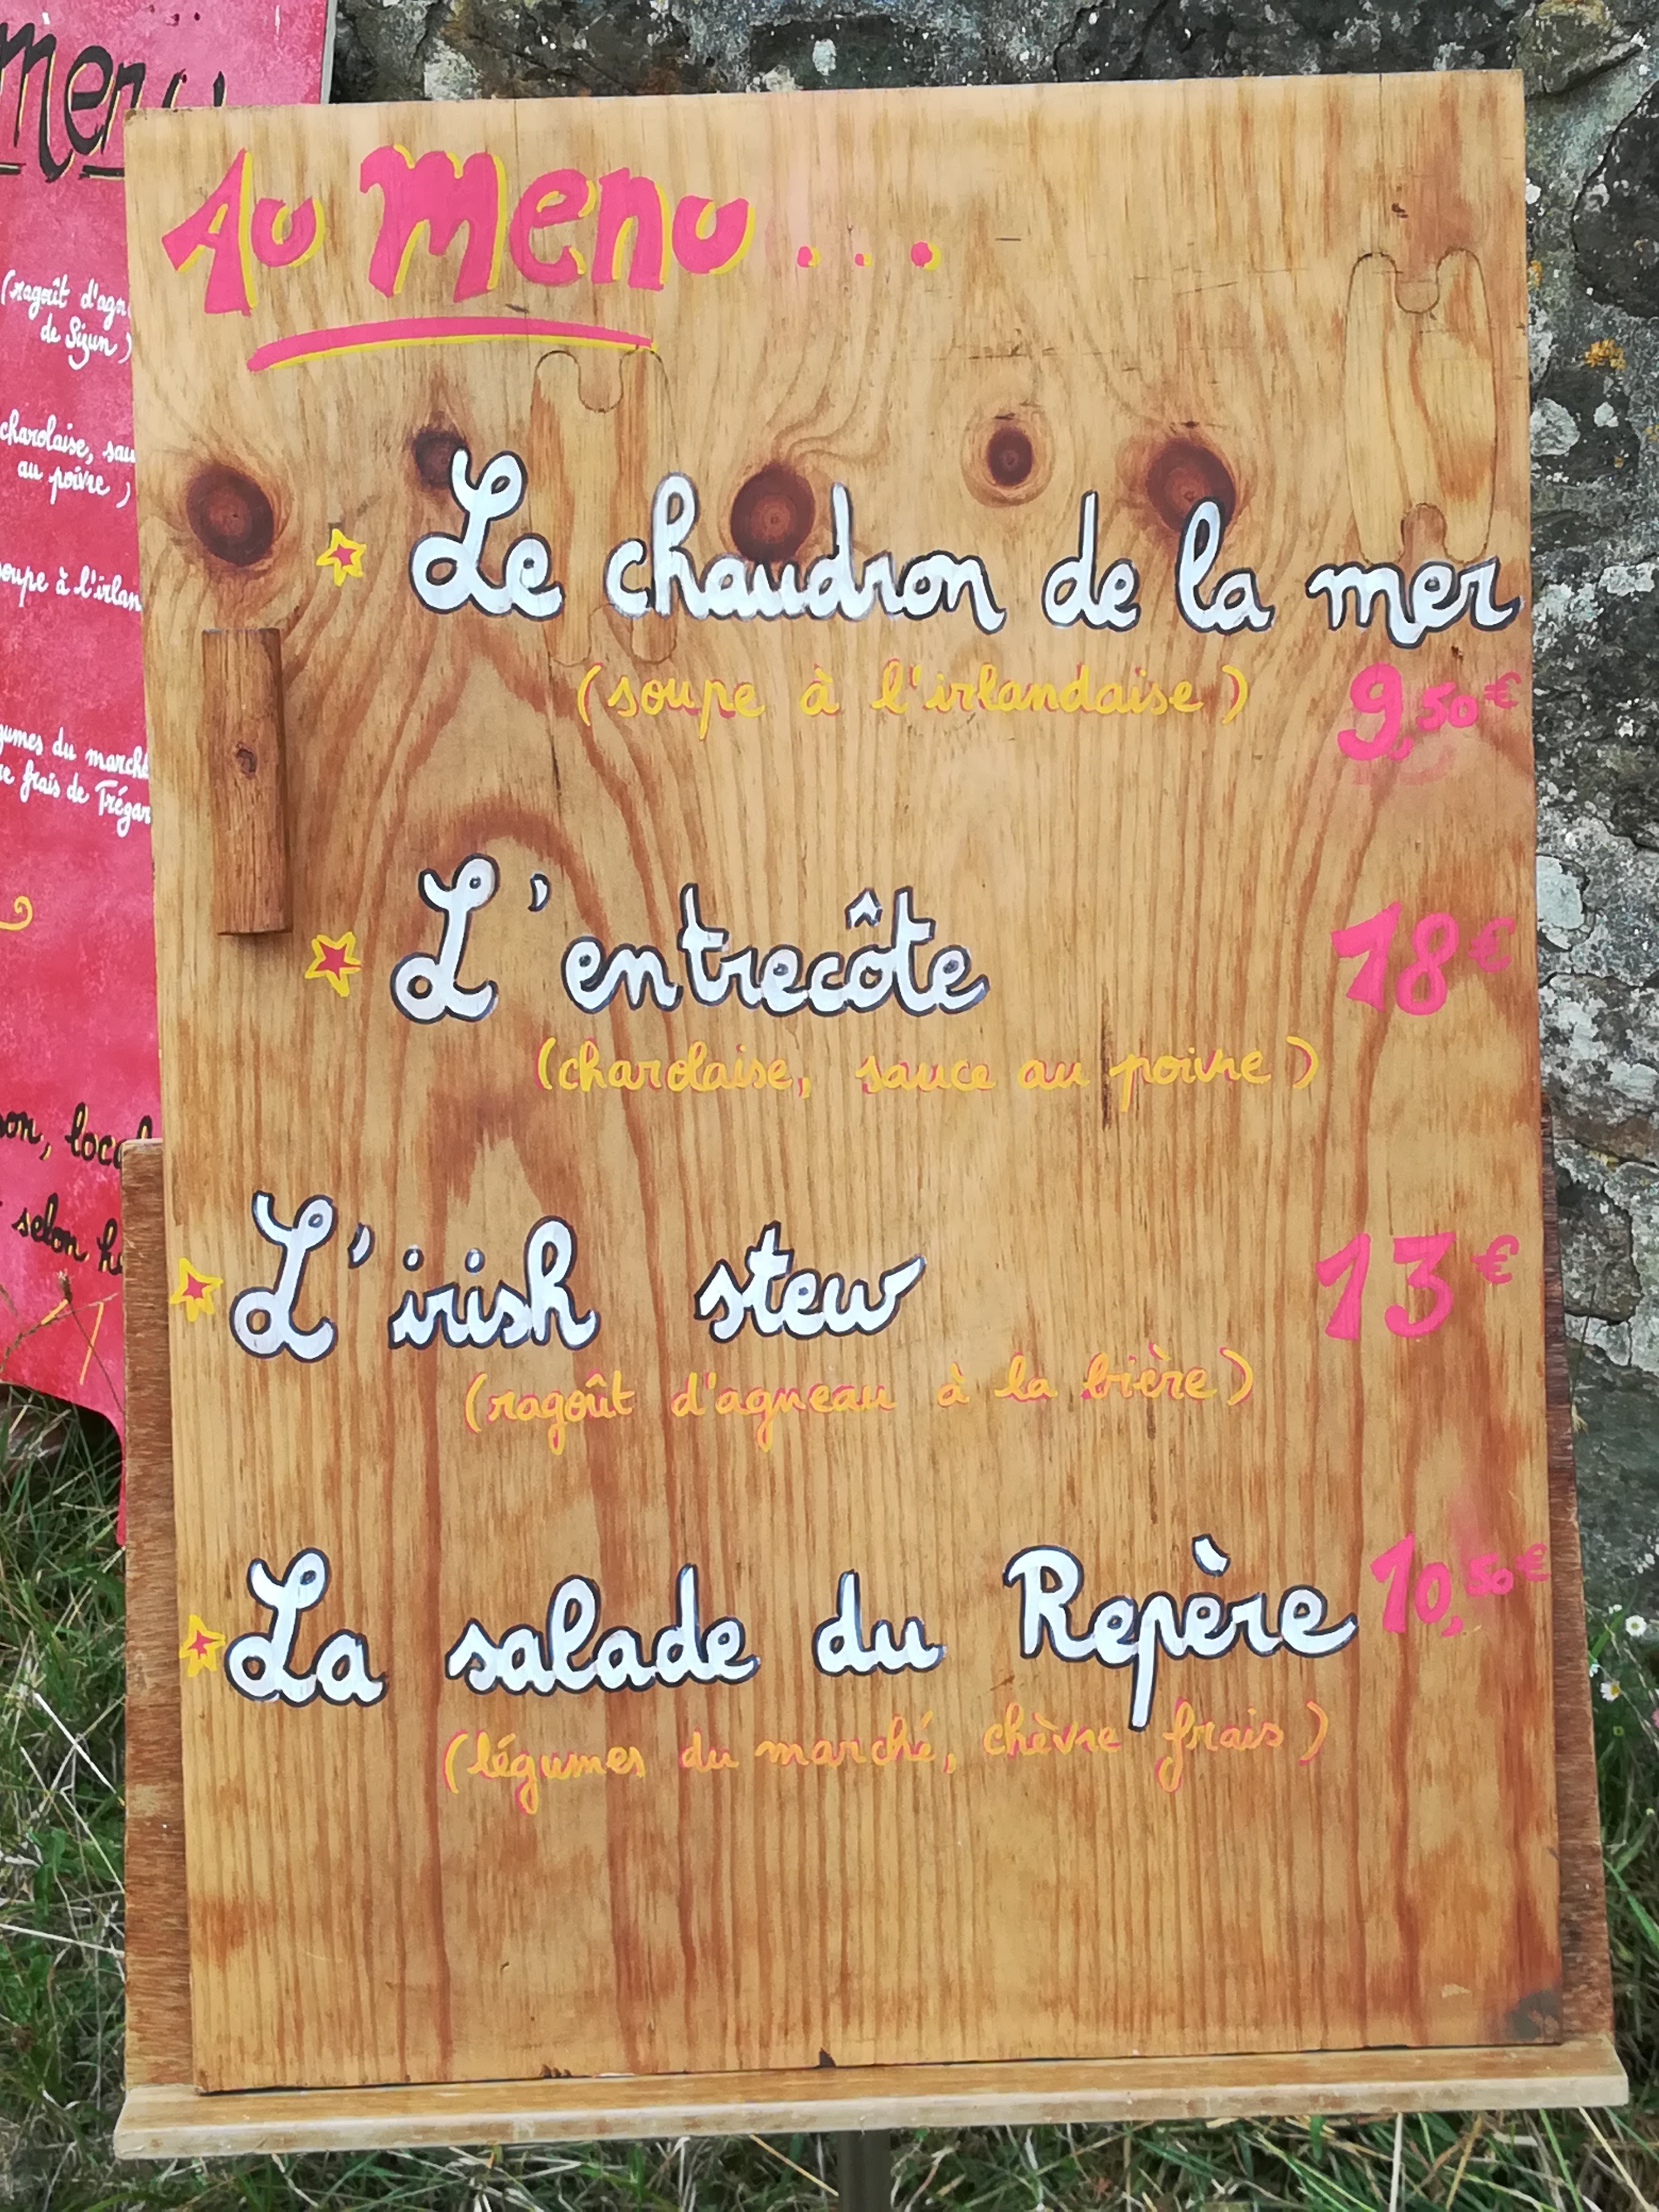 menu
(ragoût
de Sizun)
charolaise,
au poivre)
à
du marché
frais de
selon
Au menu...
Le chaudron de la mer
(soupe à l'irlandaise) 9,50€
L'entrecôte 18€
(charolaise, sauce au poivre)
L'irish stew 13€
(ragoût d'agneau à la bière)
La salade du Repère 10,50€
(légumes du marché, chèvre frais)